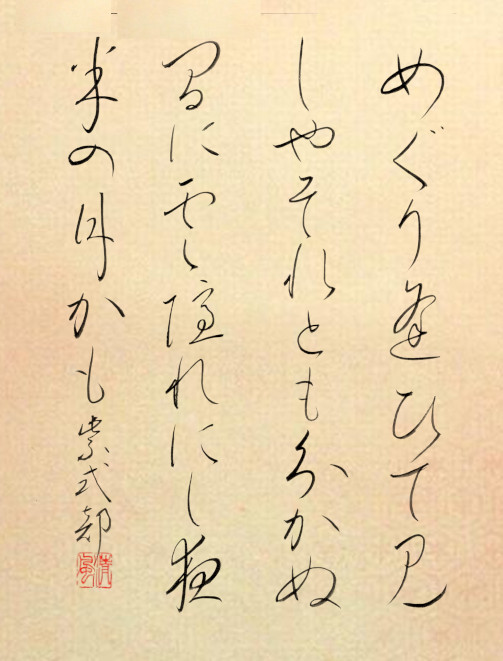 めぐり逢ひて見
しやそれとも分かぬ
間に雲隠れにし夜
半の月かも 紫式部